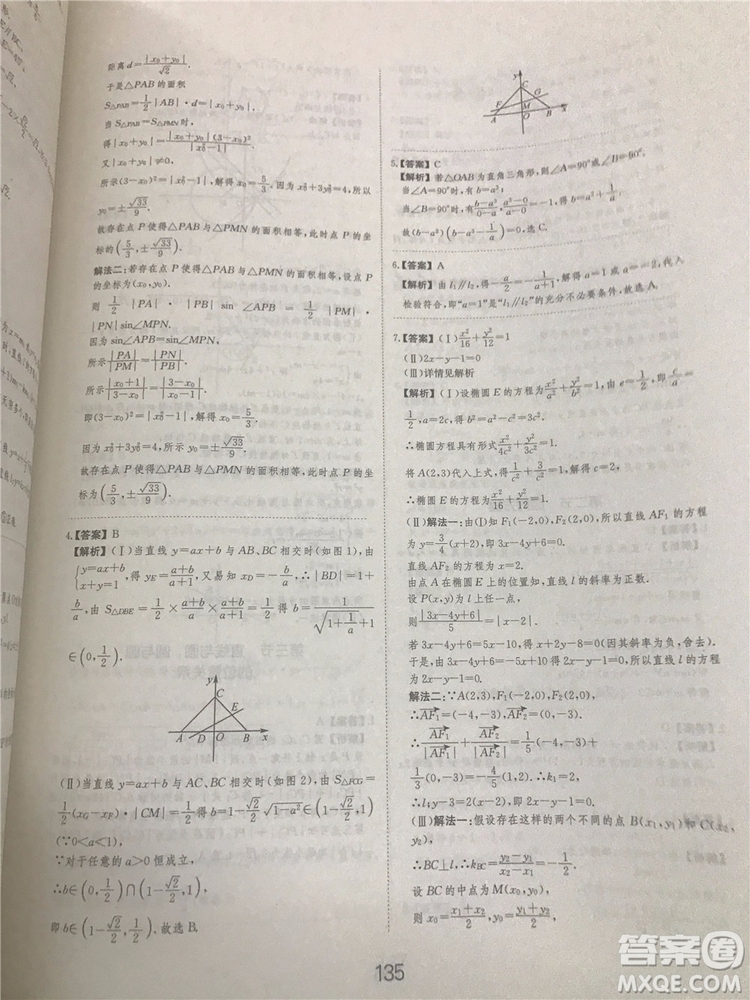 距离d=|x₀+y₀|/√2
于是△PAB的面积
S△PAB=1/2|AB|·d=|x₀+y₀|.
当S△PAB=S△PMN时,
得|x₀+y₀|=|x₀+y₀|(3-x₀)²/|x₀²-1|
又|x₀+y₀|≠0,
所示(3-x₀)²=|x₀²-1|,解得x₀=5/3.因为x₀²+3y₀²=4,所以
y₀=±√33/9.
故存在点P使得△PAB与△PMN的面积相等,此时点P的坐标
为(5/3,±√33/9).
解法二:若存在点P使得△PAB与△PMN的面积相等,设点P
的坐标为(x₀,y₀).
则 1/2|PA|·|PB|sin∠APB=1/2|PM|·
|PN|sin∠MPN.
因为sin∠APB=sin∠MPN,
所示|PA|/|PM|=|PN|/|PB|
所示|x₀+1|/|3-x₀|=|3-x₀|/|x₀-1|
即(3-x₀)²=|x₀²-1|,解得x₀=5/3.
因为x₀²+3y₀²=4,所以y₀=±√33/9.
故存在点P使得△PAB与△PMN的面积相等,此时点P的坐标
为(5/3,±√33/9).
4.【答案】B
【解析】(Ⅰ)当直线y=ax+b与AB、BC相交时(如图1),由
{y=ax+b
x+y=1,得yE=(a+b)/(a+1),又易知xD=-b/a,∴|BD|=1+
b/a,由S△DBE=1/2×(a+b)/a×(a+b)/(a+1)=1/2得b=1/(√(1+1/a)+1)
∈(0,1/2).
y
C
E
A D O B x
(Ⅱ)当直线y=ax+b与AC、BC相交时(如图2),由S△FCG=
1/2(xG-xF)·|CM|=1/2得b=1-√2/2√(1-a²)∈(1-√2/2,1)
(∵0<a<1),
∵对于任意的a>0恒成立,
∴b∈(0,1/2)∩(1-√2/2,1),
即b∈(1-√2/2,1/2).故选B.
y
C
G
F M
A O B x
5.【答案】C
【解析】若△OAB为直角三角形,则∠A=90°或∠B=90°.
当∠A=90°时,有b=a³;
当∠B=90°时,有(b-a³)/(0-a)·(a³-0)/(a-0)=-1,得b-a³-1/a=0.
故(b-a³)(b-a³-1/a)=0,选C.
6.【答案】A
【解析】由l₁∥l₂,得-a/2=-1/(a+1),解得a=1或a=-2,代入
检验符合,即“a=1”是“l₁∥l₂”的充分不必要条件,故选A.
7.【答案】(Ⅰ)x²/16+y²/12=1
(Ⅱ)2x-y-1=0
(Ⅲ)详情见解析
【解析】(Ⅰ)设椭圆E的方程为x²/a²+y²/b²=1,由e=1/2,即c/a=
1/2,a=2c,得b²=a²-c²=3c².
∴椭圆方程具有形式x²/4c²+y²/3c²=1.
将A(2,3)代入上式,得1/c²+3/c²=1,解得c=2,
∴椭圆E的方程为x²/16+y²/12=1.
(Ⅱ)解法一:由(Ⅰ)知F₁(-2,0),F₂(2,0),所以直线AF₁的方程
为y=3/4(x+2),即3x-4y+6=0,
直线AF₂的方程为x=2.
由点A在椭圆E上的位置知,直线l的斜率为正数.
设P(x,y)为l上任一点,
则|3x-4y+6|/5=|x-2|.
若3x-4y+6=5x-10,得x+2y-8=0(因其斜率为负,舍去).
于是,由3x-4y+6=-5x+10,得2x-y-1=0,所以直线l的方程
为2x-y-1=0.
解法二:∵A(2,3),F₁(-2,0),F₂(2,0),
∴AF₁=(-4,-3),AF₂=(0,-3).
∴AF₁/|AF₁|+AF₂/|AF₂|=1/5(-4,-3)+
1/3(0,-3)=-4/5(1,2).∴k₁=2,
∴l:y-3=2(x-2),即2x-y-1=0.
(Ⅲ)解法一:假设存在这样的两个不同的点B(x₁,y₁)和C(x₂,
y₂),
∴BC⊥l,∴kBC=(y₂-y₁)/(x₂-x₁)=-1/2.
设BC的中点为M(x₀,y₀),
则x₀=(x₁+x₂)/2,y₀=(y₁+y₂)/2,
135
答案圈
MXQE.COM